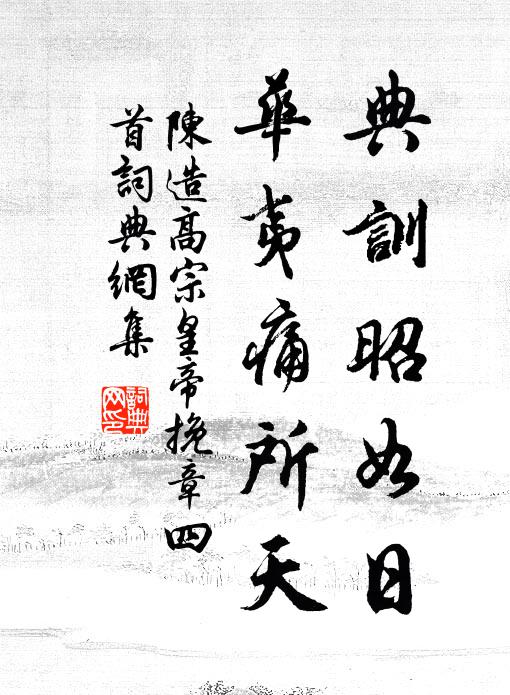 典訓昭如日
華夷痛所天
陳造高宗皇帝挽章四
首詞典網集
詞典
网印